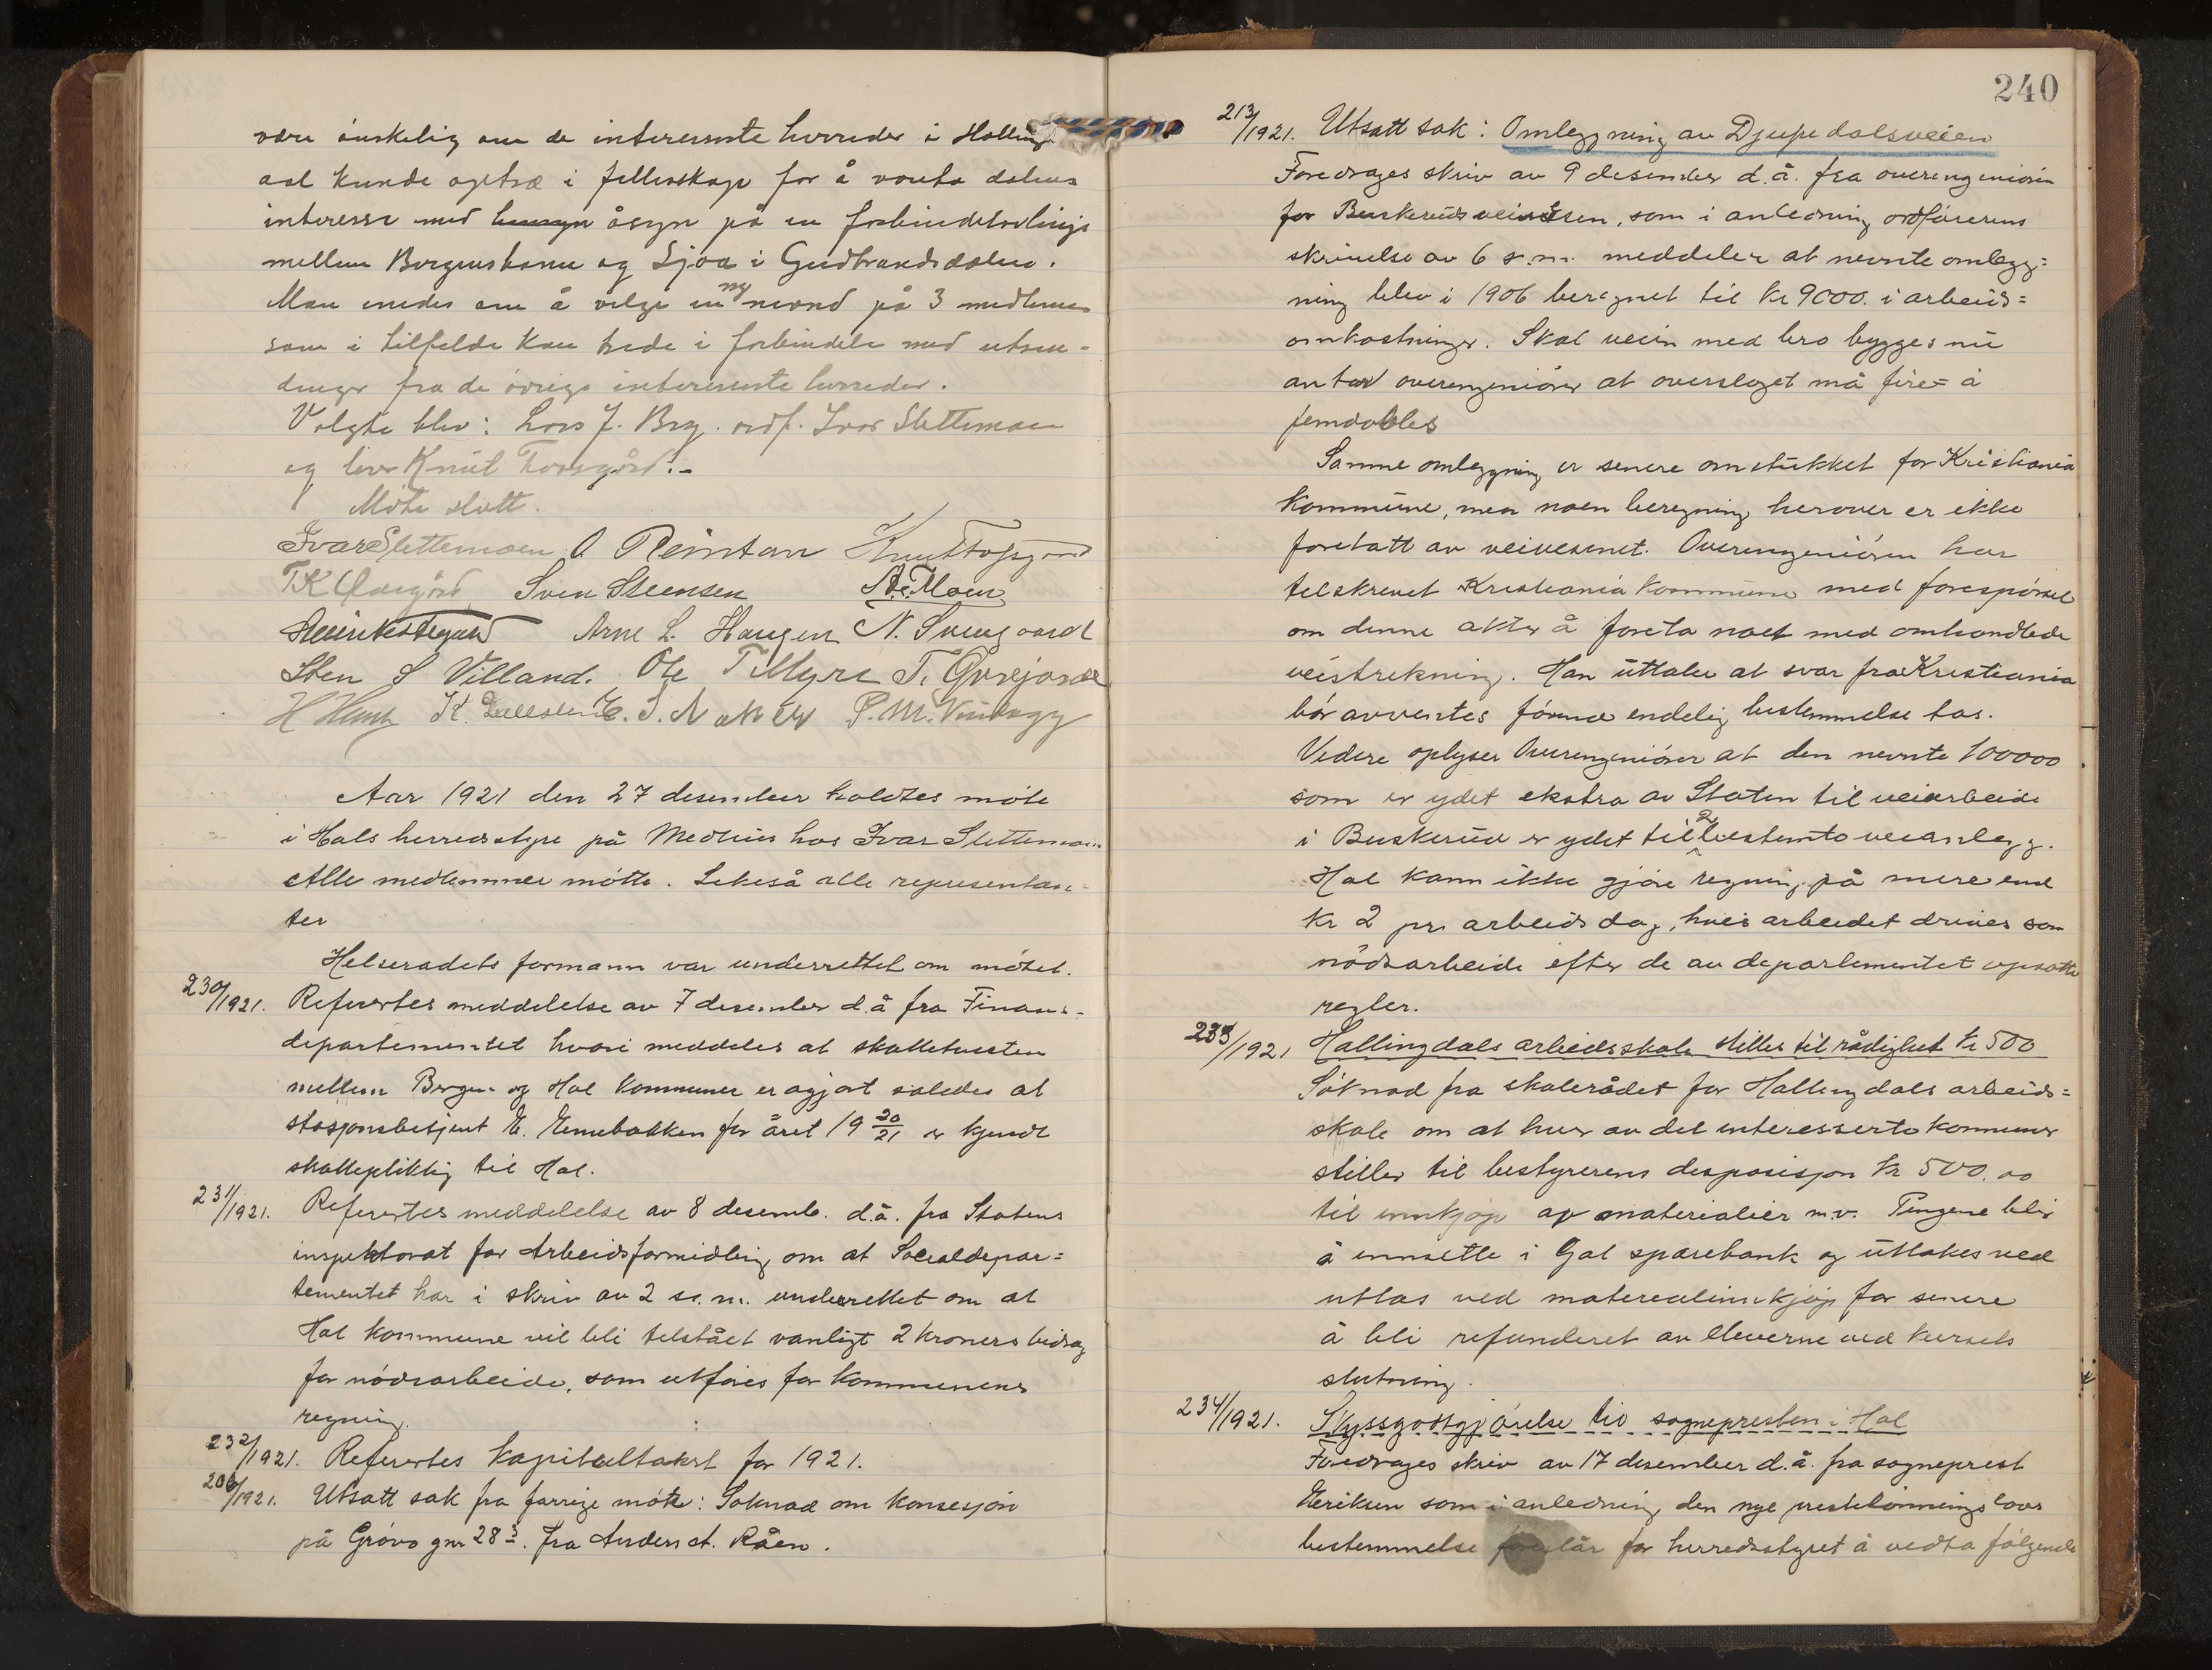 være ønskelig om de interesserte herreder i Halling
dal kunde optræ i fellesskap for å vareta dalens
interesse med hensyn åsyn på en forbindelseslinje
mellem Bergensbanen og Sjoa i Gudbrandsdalen.
Man enedes om å velge en ny nevnd på 3 medlemmer
som i tilfelde kan trede i forbindelse med utsen-
dinger fra de øvrige interesserte herreder.
Valgte blev: Lars J. Brg. ordf. Ivar Slettemoen
og lerer Knut Tofsgård.-
Møte slutt.
Ivar Slettemoen O Reintan Knut Tofsgård
TK Øvregård Sven Steensen A.E. Moen
Arne L. Haugen N. Sveingaard
Sten S Villand. Ole T Myre T. Gurejorde
K. E. S. Nakken P. M. Tuftegg
Aar 1921 den 27 desember holdtes møte
i Hols herredsstyre på Medhus hos Ivar Slettemoen
Alle medlemmer møtte. Likeså alle representan-
ter
Helseradets formann var underrettet om møtet.
230/1921. Refertes meddelelse av 7 desember d.å fra Finans-
departementet hvori meddeles at skattetvisten
mellem Bergen og Hol kommuner er avgjort således at
stasjonsbetjent E. Ennebakken for året 19 20/21 er kjendt
skattepliktig til Hol.
231/1921. Refertes meddelelse av 8 desemb. d.å. fra Statens
inspektorat for Arbeidsformidling om at Socialdepar=
tementet har i skriv av 2 s.m. underrettet om at
Hol kommune vil bli tilstået vanligt 2 kroners bidrag
for nødsarbeide, som utføres for kommunens
regning.
232/1921. Refertes kapiteltakst for 1921.
206/1921. Utsatt sak fra forrige møte: Søknad om konsesjon
på Grøvo gnr 28 3. fra Anders A. Råen.
240
213/1921. Utsatt sak: Omlegning av Djupedalsveien
Foredrages skriv av 9 desember d.å. fra overingeniøren
for Buskeruds veivesen, som i anledning ordførerens
skrivelse av 6 s.m. meddeler at nevnte omlegg=
ning blev i 1906 beregnet til kr 9000. i arbeids=
omkostninger. Skal veien med bro bygges nu
antar overingeniøren at overslaget må fire= à
femdobles
Samme omlegning er senere omstukket for Kristiania
kommune, men noen beregning herover er ikke
foretatt av veivesenet. Overingeniøren har
tilskrevet Kristiania kommune med forespørsel
om denne akter å foreta noet med omhandlede
veistrekning. Han uttaler at svar fra Kristiania
bør avventes førend endelig bestemmelse tas.
Videre oplyser Overingeniøren at den nevnte 100000
som er ydet ekstra av Staten til veiarbeide
i Buskerud er ydet til 2 bestemte veianlegg.
Hol kann ikke gjøre regning på mere end
kr 2 pr. arbeidsdag, hvis arbeidet drives som
nødsarbeide efter de av departementet opsatte
regler.
233/1921 Hallingdals arbeidsskole stilles til rådighet kr 500
Søknad fra skolerådet for Hallingdals arbeids=
skole om at hver av det interesserte kommuner
stiller til bestyrerens disposisjon kr 500.00
til innkjøp av materialier m.v. Pengene blir
å innsette i Gol sparebank og uttakes ved
uttas ved materealinnkjøp for senere
å bli refunderet av elleverne ved kursets
slutning.
234/1921. Skyssgodtgjørelse til sognepresten i Hol
Foredrages skriv av 17 desember d.å. fra sogneprest
Eriksen som i anledning den nye prestelønnings lovs
bestemmelse foreslår for herredsstyret å vedta følgende